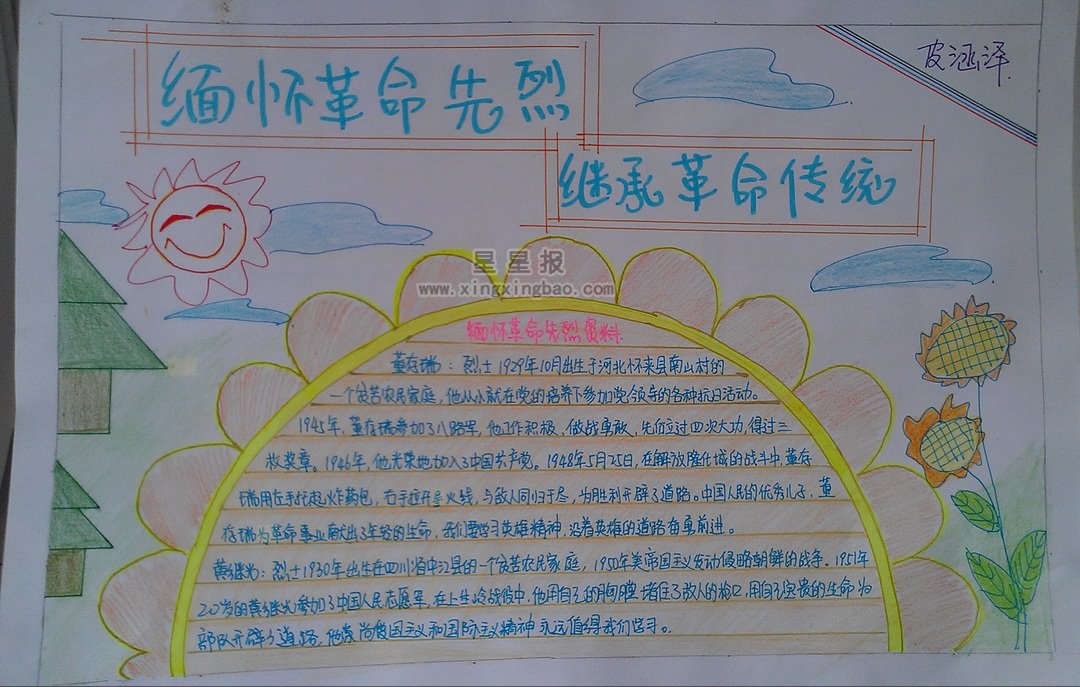 缅怀革命先烈
皮涵泽
继承革命传统
星星报
www.xingxingbao.com
缅怀革命先烈资料
董存瑞：烈士1929年10月出生于河北怀来县南山村的
一个贫苦农民家庭，他从小就在党的培养下参加党领导的各种抗日活动。
1945年，董存瑞参加了八路军，他工作积极、做战勇敢、先后立过四次大功，得过三
枚奖章。1946年，他光荣地加入了中国共产党。1948年5月25日，在解放隆化城的战斗中，董存
瑞用左手托起炸药包，右手拉开导火线，与敌人同归于尽，为胜利开辟了道路。中国人民的优秀儿子，董
存瑞为革命事业献出了年轻的生命，我们要学习英雄精神，沿着英雄的道路奋勇前进。
黄继光：烈士1930年出生在四川省中江县的一个贫苦农民家庭，1950年美帝国主义发动侵略朝鲜的战争。1951年
20岁的黄继光参加了中国人民志愿军，在上甘岭战役中，他用自己的胸膛堵住了敌人的枪口，用自己宝贵的生命为
部队开辟了道路，他崇尚爱国主义和国际主义精神永远值得我们学习。